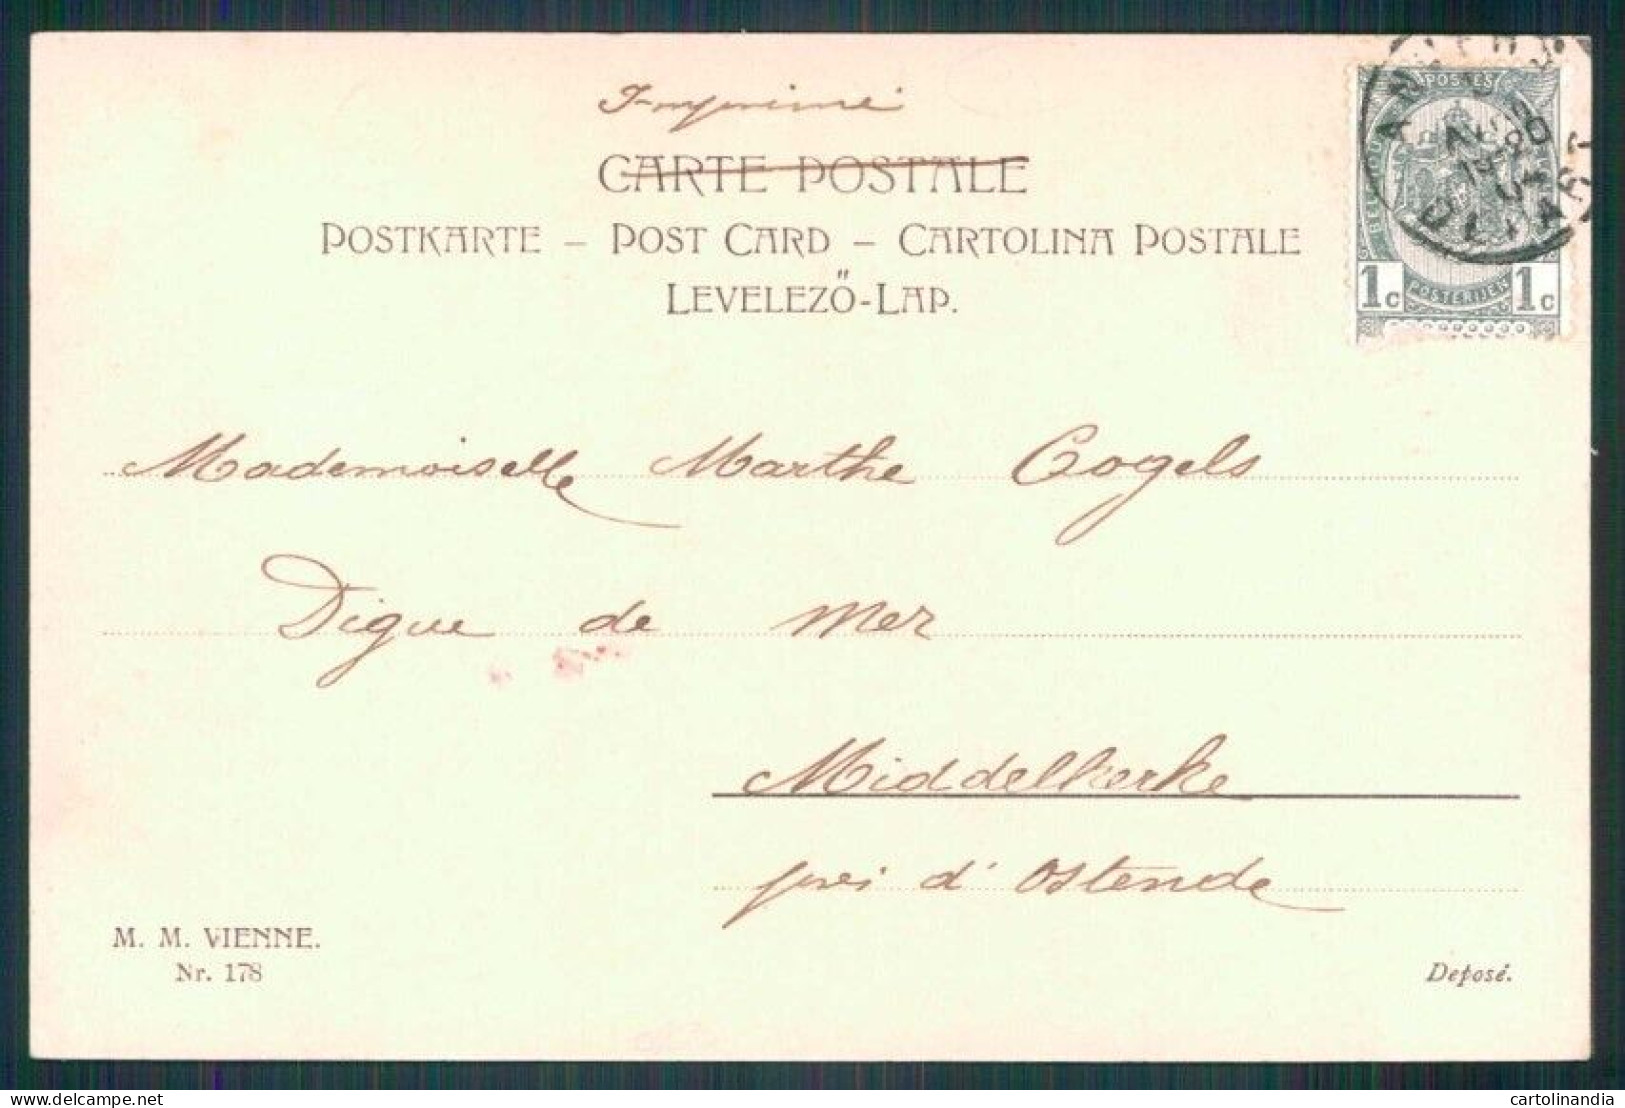 Imprimé
CARTE POSTALE
POSTKARTE – POST CARD – CARTOLINA POSTALE
LEVELEZŐ-LAP.
POSTES
1c POSTERIJEN 1c
Mademoiselle Marthe Cogels
Digue de Mer
Middelkerke
près d'Ostende
M. M. VIENNE.
Nr. 178
Deposé.
delcampe.net
cartolinandia